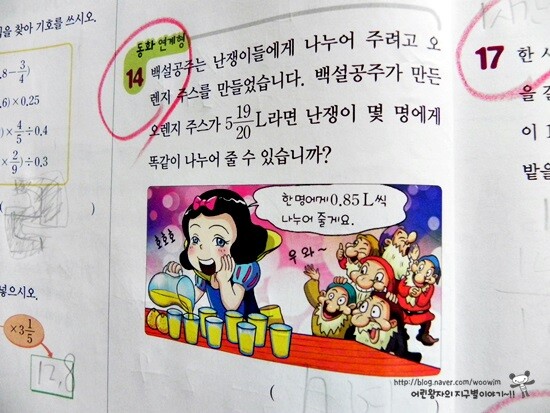 을 찾아 기호를 쓰시오.
.8－3/4)
.6)×0.25
)×4/5÷0.4
×2/9)÷0.3
( )
넣으시오.
×3 1/5
12.8
동화 연계형
14 백설공주는 난쟁이들에게 나누어 주려고 오
렌지 주스를 만들었습니다. 백설공주가 만든
오렌지 주스가 5 19/20 L라면 난쟁이 몇 명에게
똑같이 나누어 줄 수 있습니까?
한 명에게 0.85 L씩
나누어 줄게요.
호호호
우와~
(
17 한 사
을 길
이 1
밭을
http://blog.naver.com/woowim
어린왕자의 지구별이야기~!!